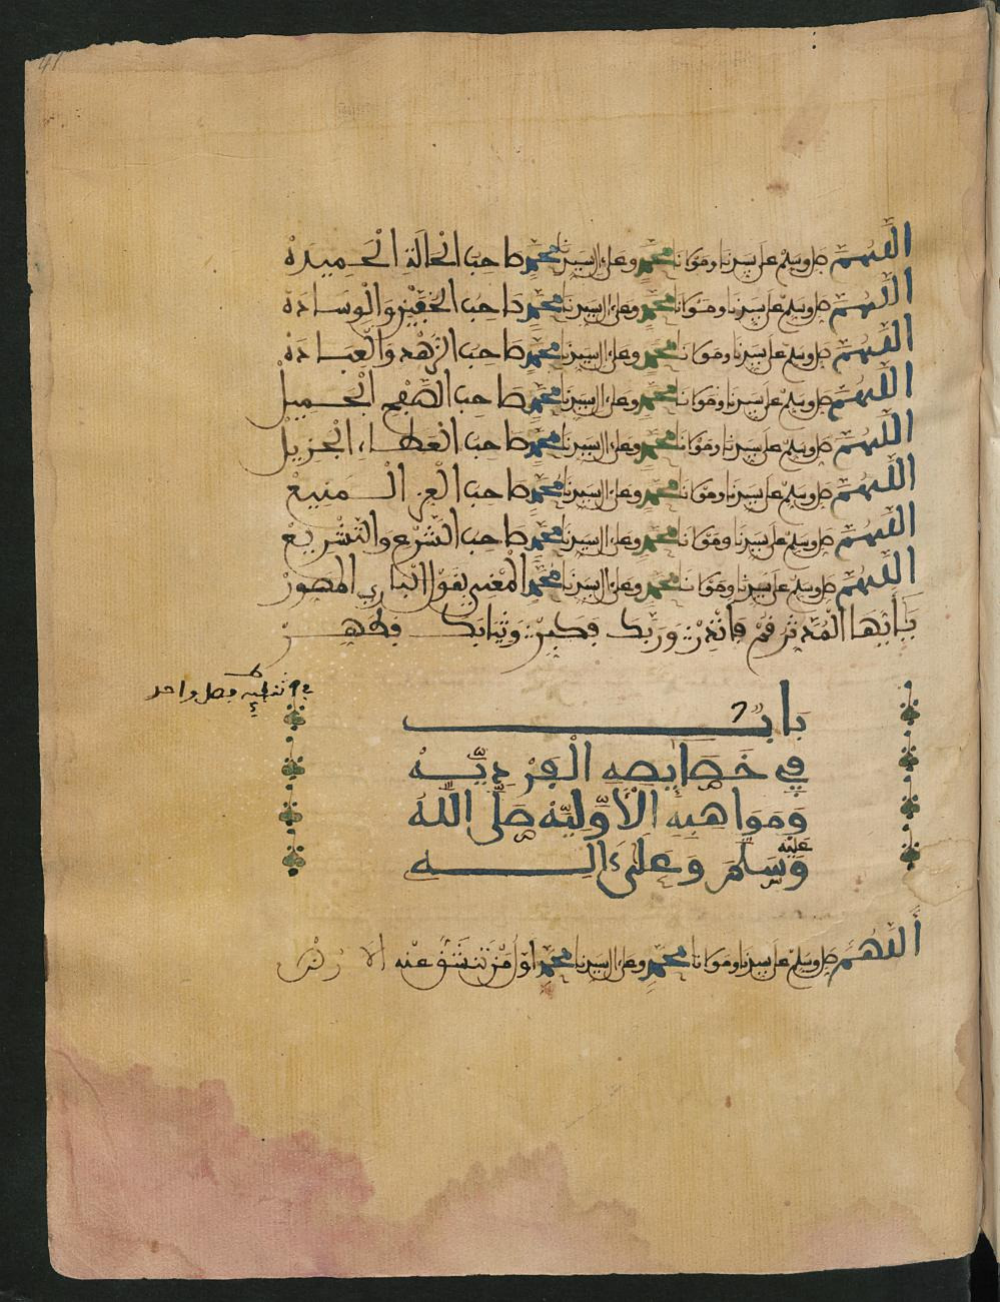 41
اللهم صل وسلم على سيدنا ومولانا محمد وعلى ءال سيدنا محمد صاحب الحالة الحميدة
اللهم صل وسلم على سيدنا ومولانا محمد وعلى ءال سيدنا محمد صاحب الخفين والوسادة
اللهم صل وسلم على سيدنا ومولانا محمد وعلى ءال سيدنا محمد صاحب الزهد والعبادة
اللهم صل وسلم على سيدنا ومولانا محمد وعلى ءال سيدنا محمد صاحب الصفح الجميل
اللهم صل وسلم على سيدنا ومولانا محمد وعلى ءال سيدنا محمد صاحب العطاء الجزيل
اللهم صل وسلم على سيدنا ومولانا محمد وعلى ءال سيدنا محمد صاحب العز المنيع
اللهم صل وسلم على سيدنا ومولانا محمد وعلى ءال سيدنا محمد صاحب الشرع والتشريع
اللهم صل وسلم على سيدنا ومولانا محمد وعلى ءال سيدنا محمد المعني بقول الباري المصور
يأيها المدثر قم فأنذر وربك فكبر وثيابك فطهر
فصل واحد
باب
في خصايصه الفردية
ومواهبه الأولية صلى الله
عليه وسلم وعلى ءاله
اللهم صل وسلم على سيدنا ومولانا محمد وعلى ءال سيدنا محمد اول من تنشق عنه الارض